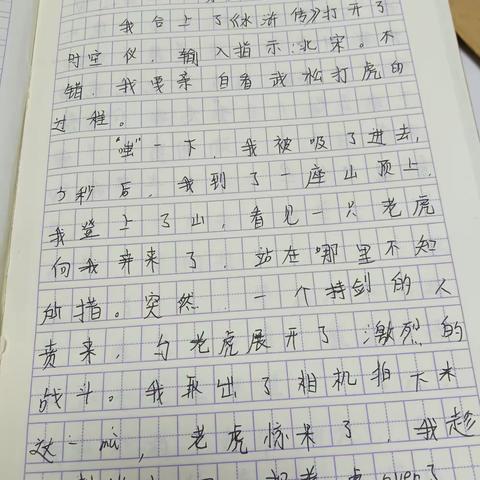 我合上了《水浒传》打开了
时空仪，输入指示:北宋。不
错，我要亲自看武松打虎的
过程。
"嗤"一下，我被吸了进去，
3秒后，我到了一座山顶上，
我登上了山，看见一只老虎
向我奔来了，站在哪里不知
所措。突然，一个持剑的人
责来，与老虎展开了激烈的
战斗。我取出了相机拍下来
这一mù，老虎惊呆了，我趁